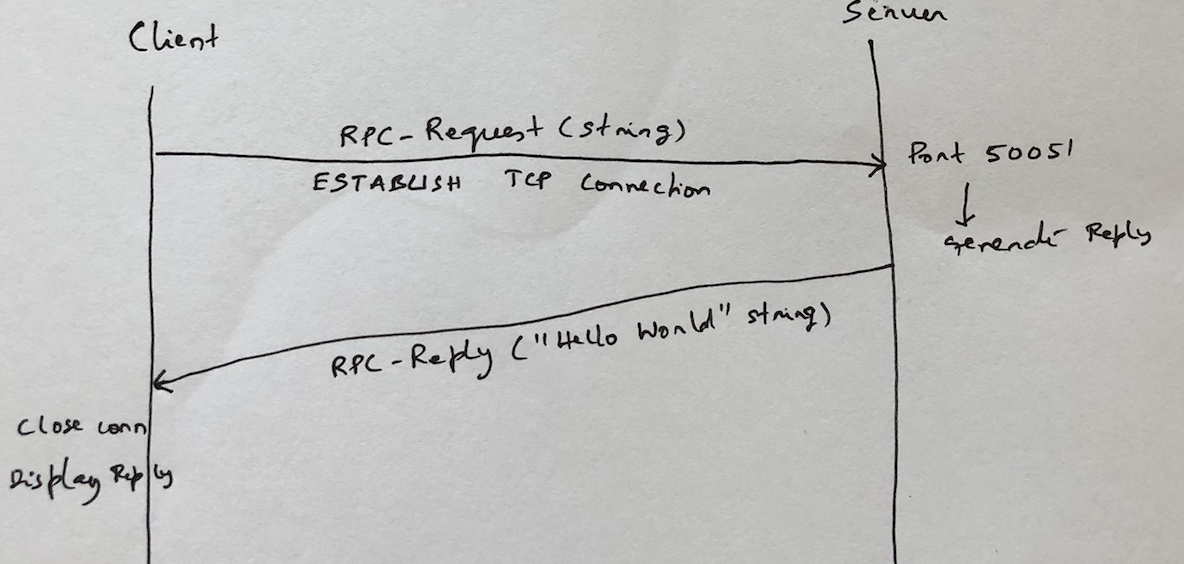 Client
Server
RPC-Request (string)
ESTABLISH TCP Connection
Port 50051
Generate Reply
RPC-Reply ("Hello World" string)
Close conn
Display Reply